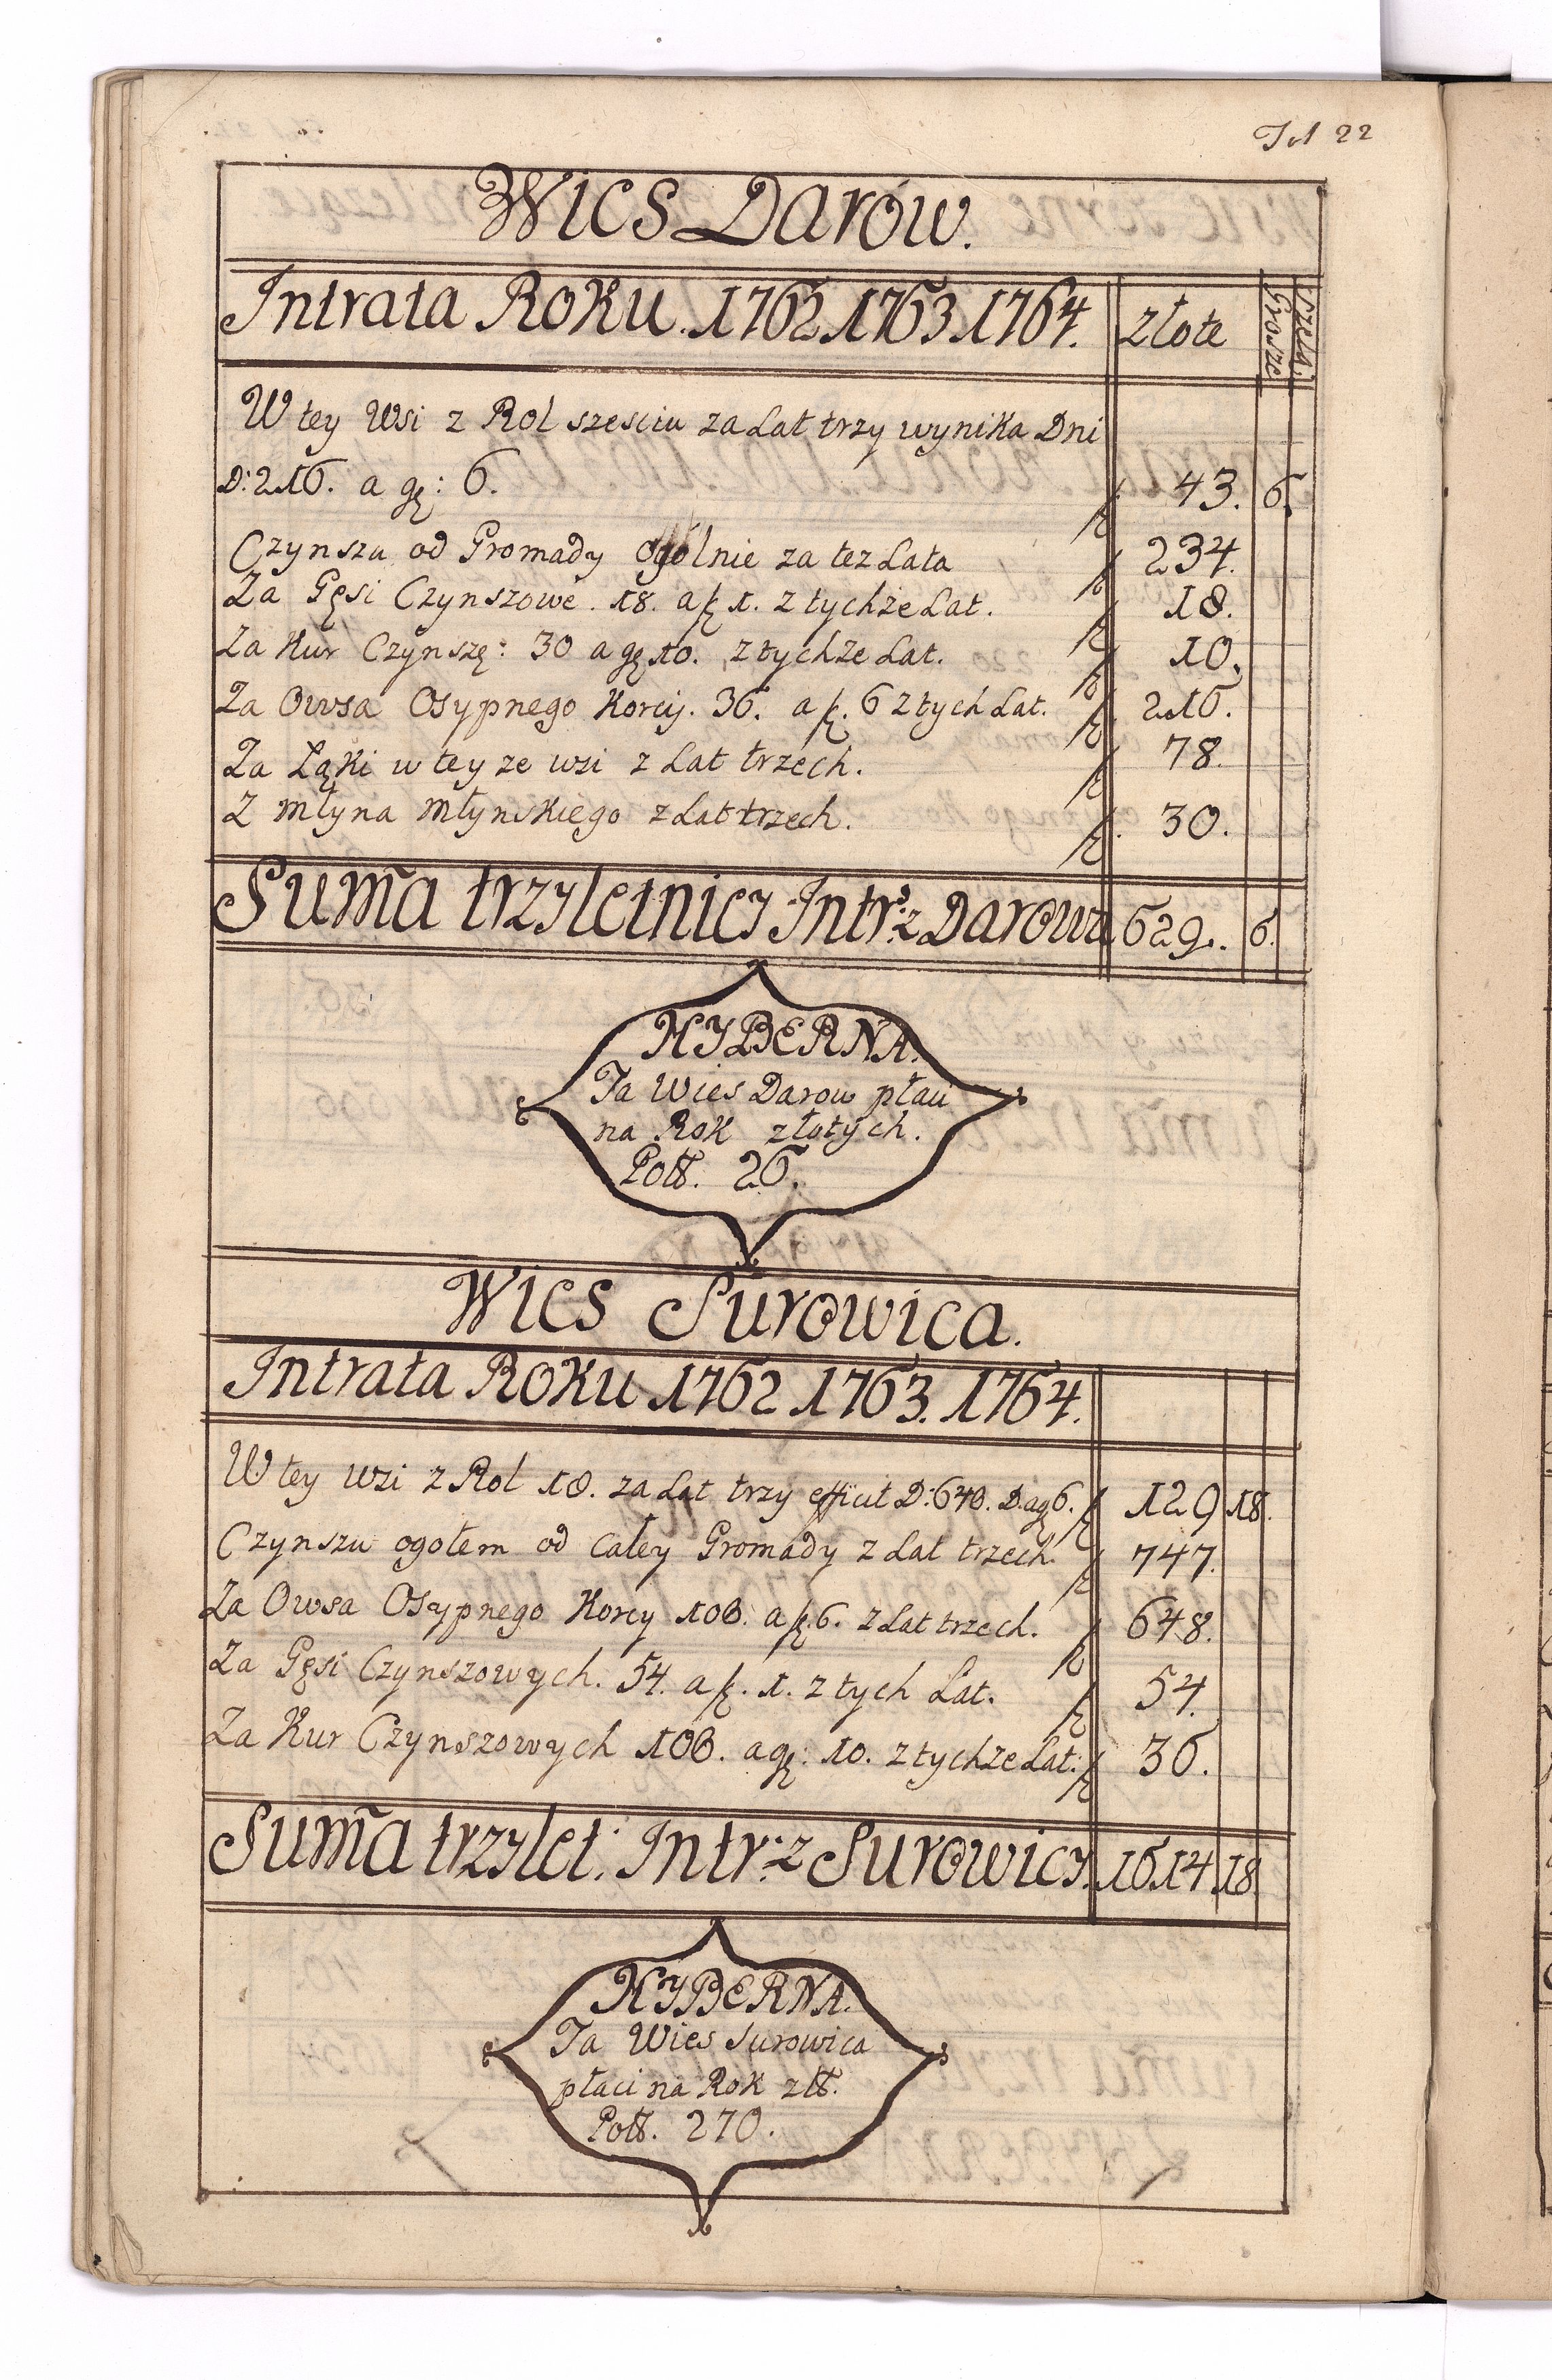 Wies Darów.
Intrata Roku. 1762 1763 1764. złote Grosze Szelą:
W tey Wsi z Rol szesciu za Lat trzy wynika Dni
D: 216. a gꝛ: 6. 43. 6.
Czynszu od Gromady ogolnie za tez Lata 234.
Za Gęsi Czynszowe. 18. a fꝛ 1. z tychże Lat. 18.
Za Kur Czynszę: 30 a gꝛ 10. z tychże Lat. 10.
Za Owsa Osypnego Korcy. 36. a fꝛ. 6 z tych Lat. 216.
Za Ląki w tey ze wsi z Lat trzech. 78.
Z młyna młynskiego z Lat trzech. 30.
Sum̃a trzyletniey Intr: z Darowa 629. 6.
HYBERNA.
Ta Wies Darow płaci
na Rok złotych.
Poll. 26.
Wies Surowica.
Intrata Roku 1762 1763. 1764.
W tey wsi z Rol 18. za Lat trzy efficit D: 648. D. a gꝛ 6. 129 18.
Czynszu ogołem od całey Gromady z Lat trzech. 747.
Za Owsa Osypnego Korcy 108. a fꝛ. 6. z Lat trzech. 648.
Za Gęsi Czynszowych. 54. a fꝛ. 1. z tych Lat. 54.
Za Kur Czynszowych 108. a gꝛ: 10. z tychże Lat: 36.
Sum̃a trzylet: Intr: z Surowicy. 1614 18
HYBERNA.
Ta Wies Surowica
płaci na Rok zll.
Poll. 270.